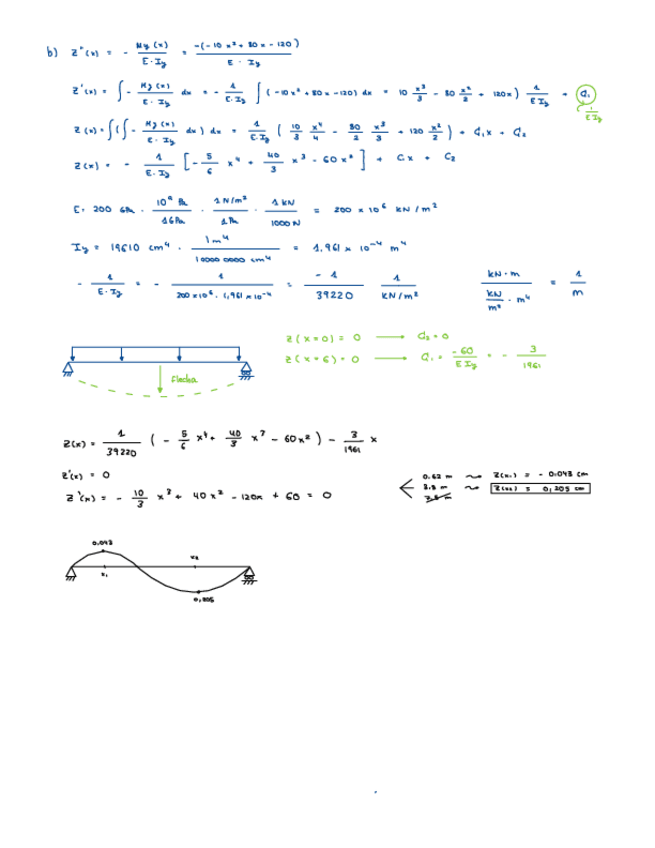 b) z"(x) = - My(x) / E·Iy = -(-10x² + 80x - 120) / E·Iy
z'(x) = ∫ - My(x) / E·Iy dx = - 1 / E·Iy ∫ (-10x² + 80x - 120) dx = 10 x³/3 - 80 x²/2 + 120x) 1 / E Iy + C₁
1 / E Iy
z(x) = ∫(∫ - My(x) / E·Iy dx) dx = 1 / E·Iy ( 10/3 x⁴/4 - 80/2 x³/3 + 120 x²/2 ) + C₁x + C₂
z(x) = - 1 / E·Iy [ - 5/6 x⁴ + 40/3 x³ - 60x² ] + Cx + C₂
E = 200 GPa · 10⁹ Pa / 1 GPa · 1 N/m² / 1 Pa · 1 kN / 1000 N = 200 x 10⁶ kN/m²
Iy = 19610 cm⁴ · 1 m⁴ / 10000 0000 cm⁴ = 1,961 x 10⁻⁴ m⁴
- 1 / E·Iy = - 1 / 200x10⁶ · 1,961 x 10⁻⁴ = -1 / 39220 1 / kN/m² kN·m / kN/m² · m⁴ = 1 / m
z(x=0) = 0 → C₂ = 0
z(x=6) = 0 → C₁ = -60 / E Iy = - 3 / 1961
flecha
z(x) = 1 / 39220 ( - 5/6 x⁴ + 40/3 x³ - 60x² ) - 3 / 1961 x
z'(x) = 0
z'(x) = - 10/3 x³ + 40x² - 120x + 60 = 0
0.62 m ⇝ z(x₁) = - 0.043 cm
3.8 m ⇝ z(x₂) = 0,205 cm
0.043
x₂
x₁
0,205